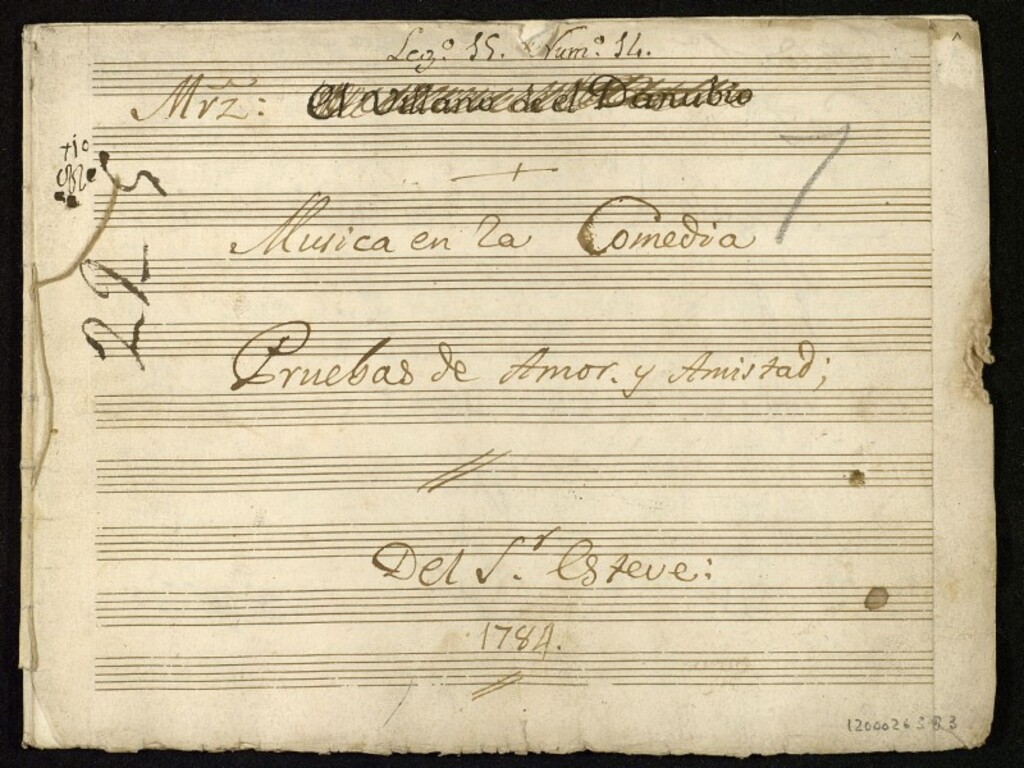 Leg.º 15. Num.º 14.
Mrz̃: El Villano de el Danubio
7
22
Musica en la Comedia
Pruebas de Amor. y Amistad;
Del S.r Esteve:
1784.